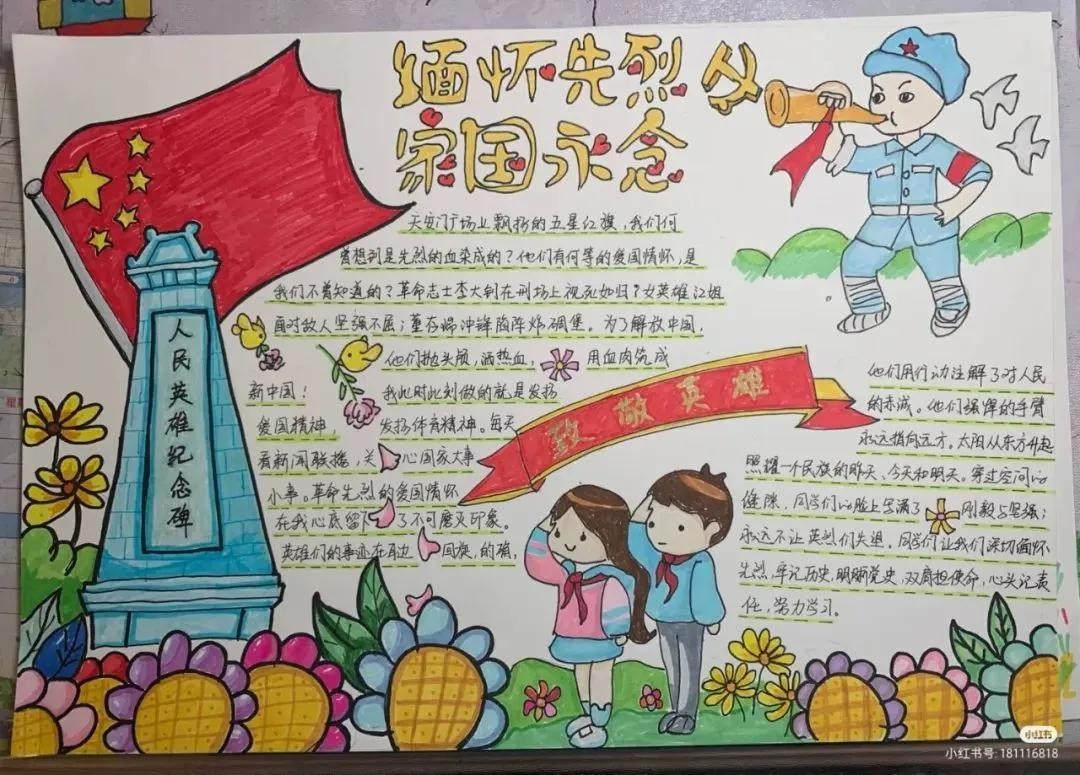 缅怀先烈
家国永念
人民英雄纪念碑
天安门广场上飘扬的五星红旗，我们何
曾想到是先烈的血染成的？他们有何等的爱国情怀，是
我们不曾知道的？革命志士李大钊在刑场上视死如归？女英雄江姐
面对敌人坚强不屈；董存瑞冲锋陷阵炸碉堡。为了解放中国，
他们抛头颅，洒热血，用血肉筑成
新中国！我此时此刻做的就是发扬
爱国精神，发扬体育精神。每天
看新闻联播，关心国家大事
小事。革命先烈的爱国情怀
在我心底留下了不可磨灭印象。
英雄们的事迹在耳边回旋，的确，
致敬英雄
他们用行动注解了对人民
的赤诚。他们强悍的手臂
永远指向远方，太阳从东方升起
照耀一个民族的昨天、今天和明天。穿过空间的
缝隙，同学们的脸上写满了刚毅与坚强；
永远不让英烈们失望，同学们让我们深切缅怀
先烈，牢记历史，明晰党史，双肩担使命，心头记责
任，努力学习。
小红书
小红书号: 181116818